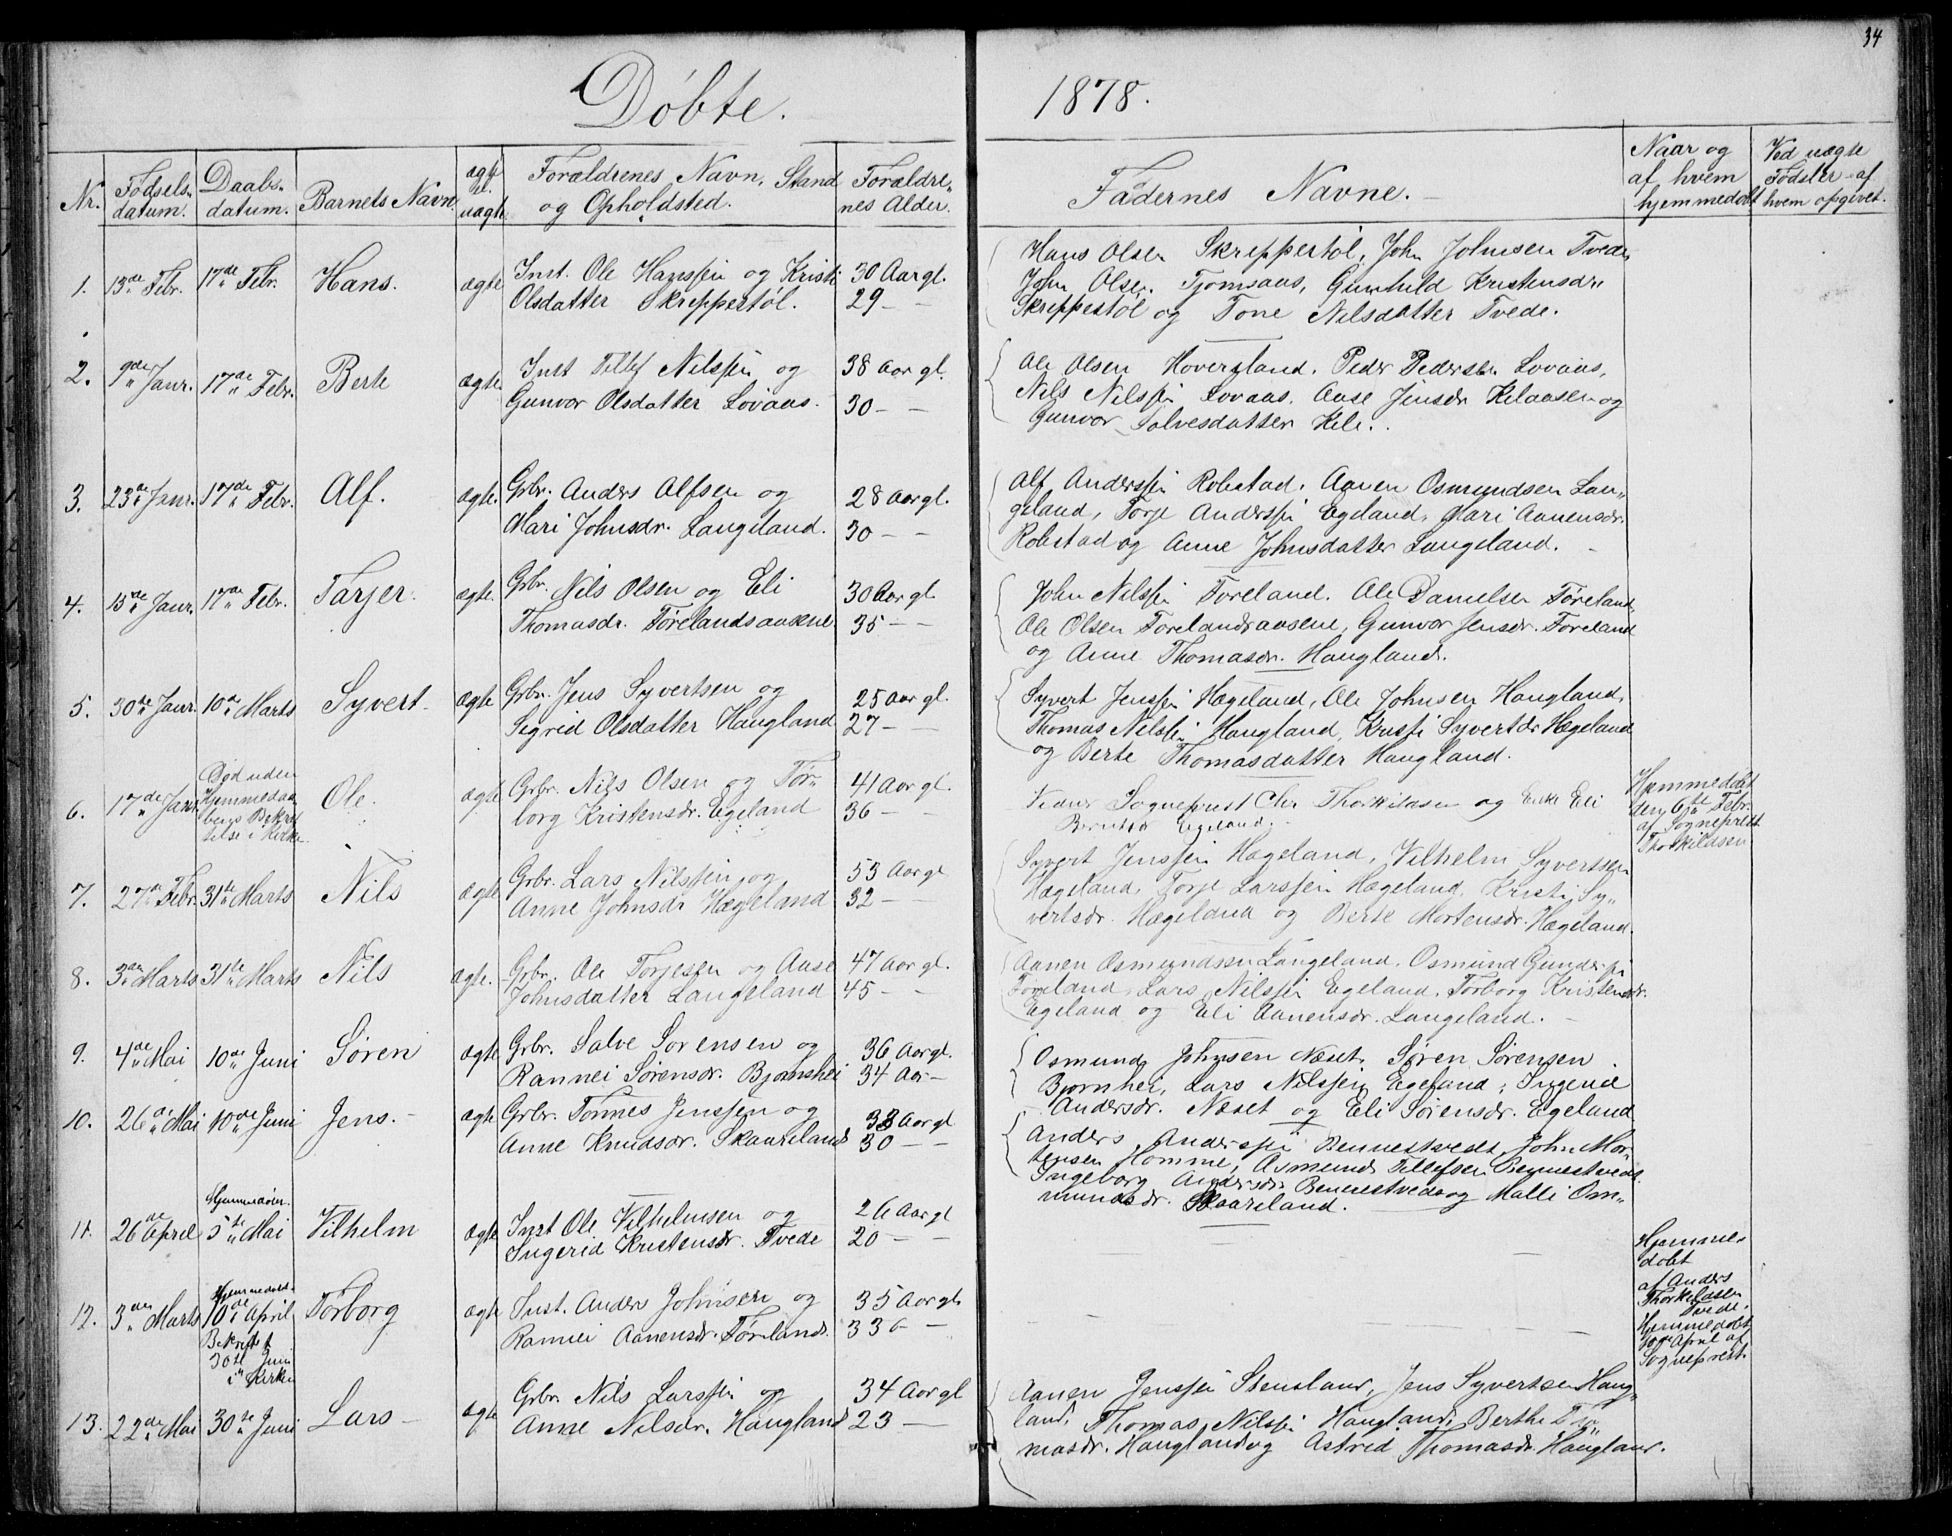 34
Døbte. 1878.
Nr. Fødsels- datum. Daabs- datum. Barnets Navn ægte el. uægte Forældrenes Navn, Stand og Opholdsted. Forældre- nes Alder. Faddernes Navne. Naar og af hvem hjemmedøbt Ved uægte Fødsler af hvem opgivet.
1. 13de Febr. 17de Febr. Hans. ægte Inst. Ole Hanssen og Kristi 30 Aar gl.
Olsdatter Skreppestøl. 29 – –
Hans Olsen Skreppestøl, John Johnsen Tvede,
John Olsen Tjomsaas, Gunhild Kristensdr.
Skreppestøl og Tone Nilsdatter Tvede.
2. 9de Janr. 17de Febr. Berte ægte Inst Tellef Nilssen og 38 Aar gl.
Gunvor Olsdatter Lovaas. 30 – –
Ole Olsen Hoversland. Peder Pedersen Lovaas,
Nils Nilssen Lovaas. Aase Jensdr. Kilaasen og
Gunvor Salvesdatter Kile.
3. 23de Janr. 17de Febr. Alf. ægte. Grbr. Anders Alfsen og 28 Aar gl.
Mari Johnsdr. Langeland. 30 – –
Alf Anderssen Robstad. Aanen Osmundsen Lan-
geland, Torje Anderssen Egeland, Mari Aanensdr.
Robstad og Anne Johnsdatter Langeland.
4. 15de Janr. 17de Febr. Tarjer. ægte. Grbr. Nils Olsen og Eli 30 Aar gl.
Thomasdr. Førelandsaasene 35 – –
John Nilssen Føreland. Ole Danielsen Føreland
Ole Olsen Førelandsaasene, Gunvor Jensdr. Føreland
og Anne Thomasdr. Haugland.
5. 30de Janr. 10de Marts Syvert ægte Grbr. Jens Syvertsen og 25 Aar gl.
Sigrid Olsdatter Haugland 27 – –
Syvert Jenssen Hægeland, Ole Johnsen Haugland,
Thomas Nilssen Haugland, Kristi Syvertdr. Hægeland
og Berte Thomasdatter Haugland.
6. 17de Janr. Død uden Hjemmedaa- bens Bekræf- telse i Kirke. Ole. ægte Grbr. Nils Olsen og Tor- 41 Aar gl.
borg Kristensdr. Egeland 36 – –
Vidner Sogneprest Chr Thorkildsen og Enke Eli
Berntsdr Egeland.
Hjemmedøbt
den 6te Febr.
af Sogneprest
Thorkildsen
7. 27de Febr. 31te Marts Nils ægte Grbr. Lars Nilssen og 53 Aar gl
Anne Johnsdr Hægeland 32 – –
Syvert Jenssen Hægeland, Vilhelm Syvertsen
Hægeland, Torje Larssen Hægeland, Kristi Sy-
vertsdr. Hægeland og Berte Mortensdr. Hægeland.
8. 3de Marts 31te Marts Nils ægte. Grbr. Ole Torjesen og Aase 47 Aar gl.
Johnsdatter Langeland 45 – –
Aanen Osmundssen Langeland. Osmund Gunderssen
Føreland, Lars Nilssen Egeland. Torborg Kristensdr.
Egeland og Eli Aanensdr. Langeland.
9. 4de Mai 10de Juni Søren ægte Grbr. Salve Sørensen og 36 Aar gl.
Rannei Sørensdr. Bjørnshei 34 Aar –
Osmund Johnsen Næset, Søren Sørensen
Bjørnhei, Lars Nilssen Egeland; Ingerid
Andersdr. Næset og Eli Sørensdr. Egeland
10. 26de Mai 10de Juni Jens. ægte Grbr. Tønnes Jenssen og 33 Aar gl
Anne Knudsdr. Skaareland 30 – –
Anders Anderssen Bennestvedt, John Mor-
tensen Homme, Asmund Tellefsen Bennestvedt,
Ingeborg Andersdr. Bennestvedt og Malli Os-
mundsdr. Skaareland.
11. 26de April Hjemmedøbt 5te Mai Vilhelm ægte Inst Ole Vilhelmsen og 26 Aar gl
Ingerid Kristensdr. Tvede 20 – –
Hjemme-
døbt
af Anders
Thorkildsen
Tvede.
12. 3de Marts Hjemmedøbt 10de April Bekræftet 30te Juni i Kirke Torborg ægte Inst. Anders Johnsen og 35 Aar gl
Rannei Aanensdr. Føreland. 336 –
Hjemmedøbt
10de April af
Sogneprest.
13. 22de Mai 30te Juni Lars ægte Grbr. Nils Larssen og 34 Aar gl
Anne Nilsdr. Haugland 23 –
Aanen Jenssen Stensland, Jens Syvertsen Haug-
land, Thomas Nilssen Haugland, Berthe Tho-
masdr. Haugland og Astrid Thomasdr. Haugland.